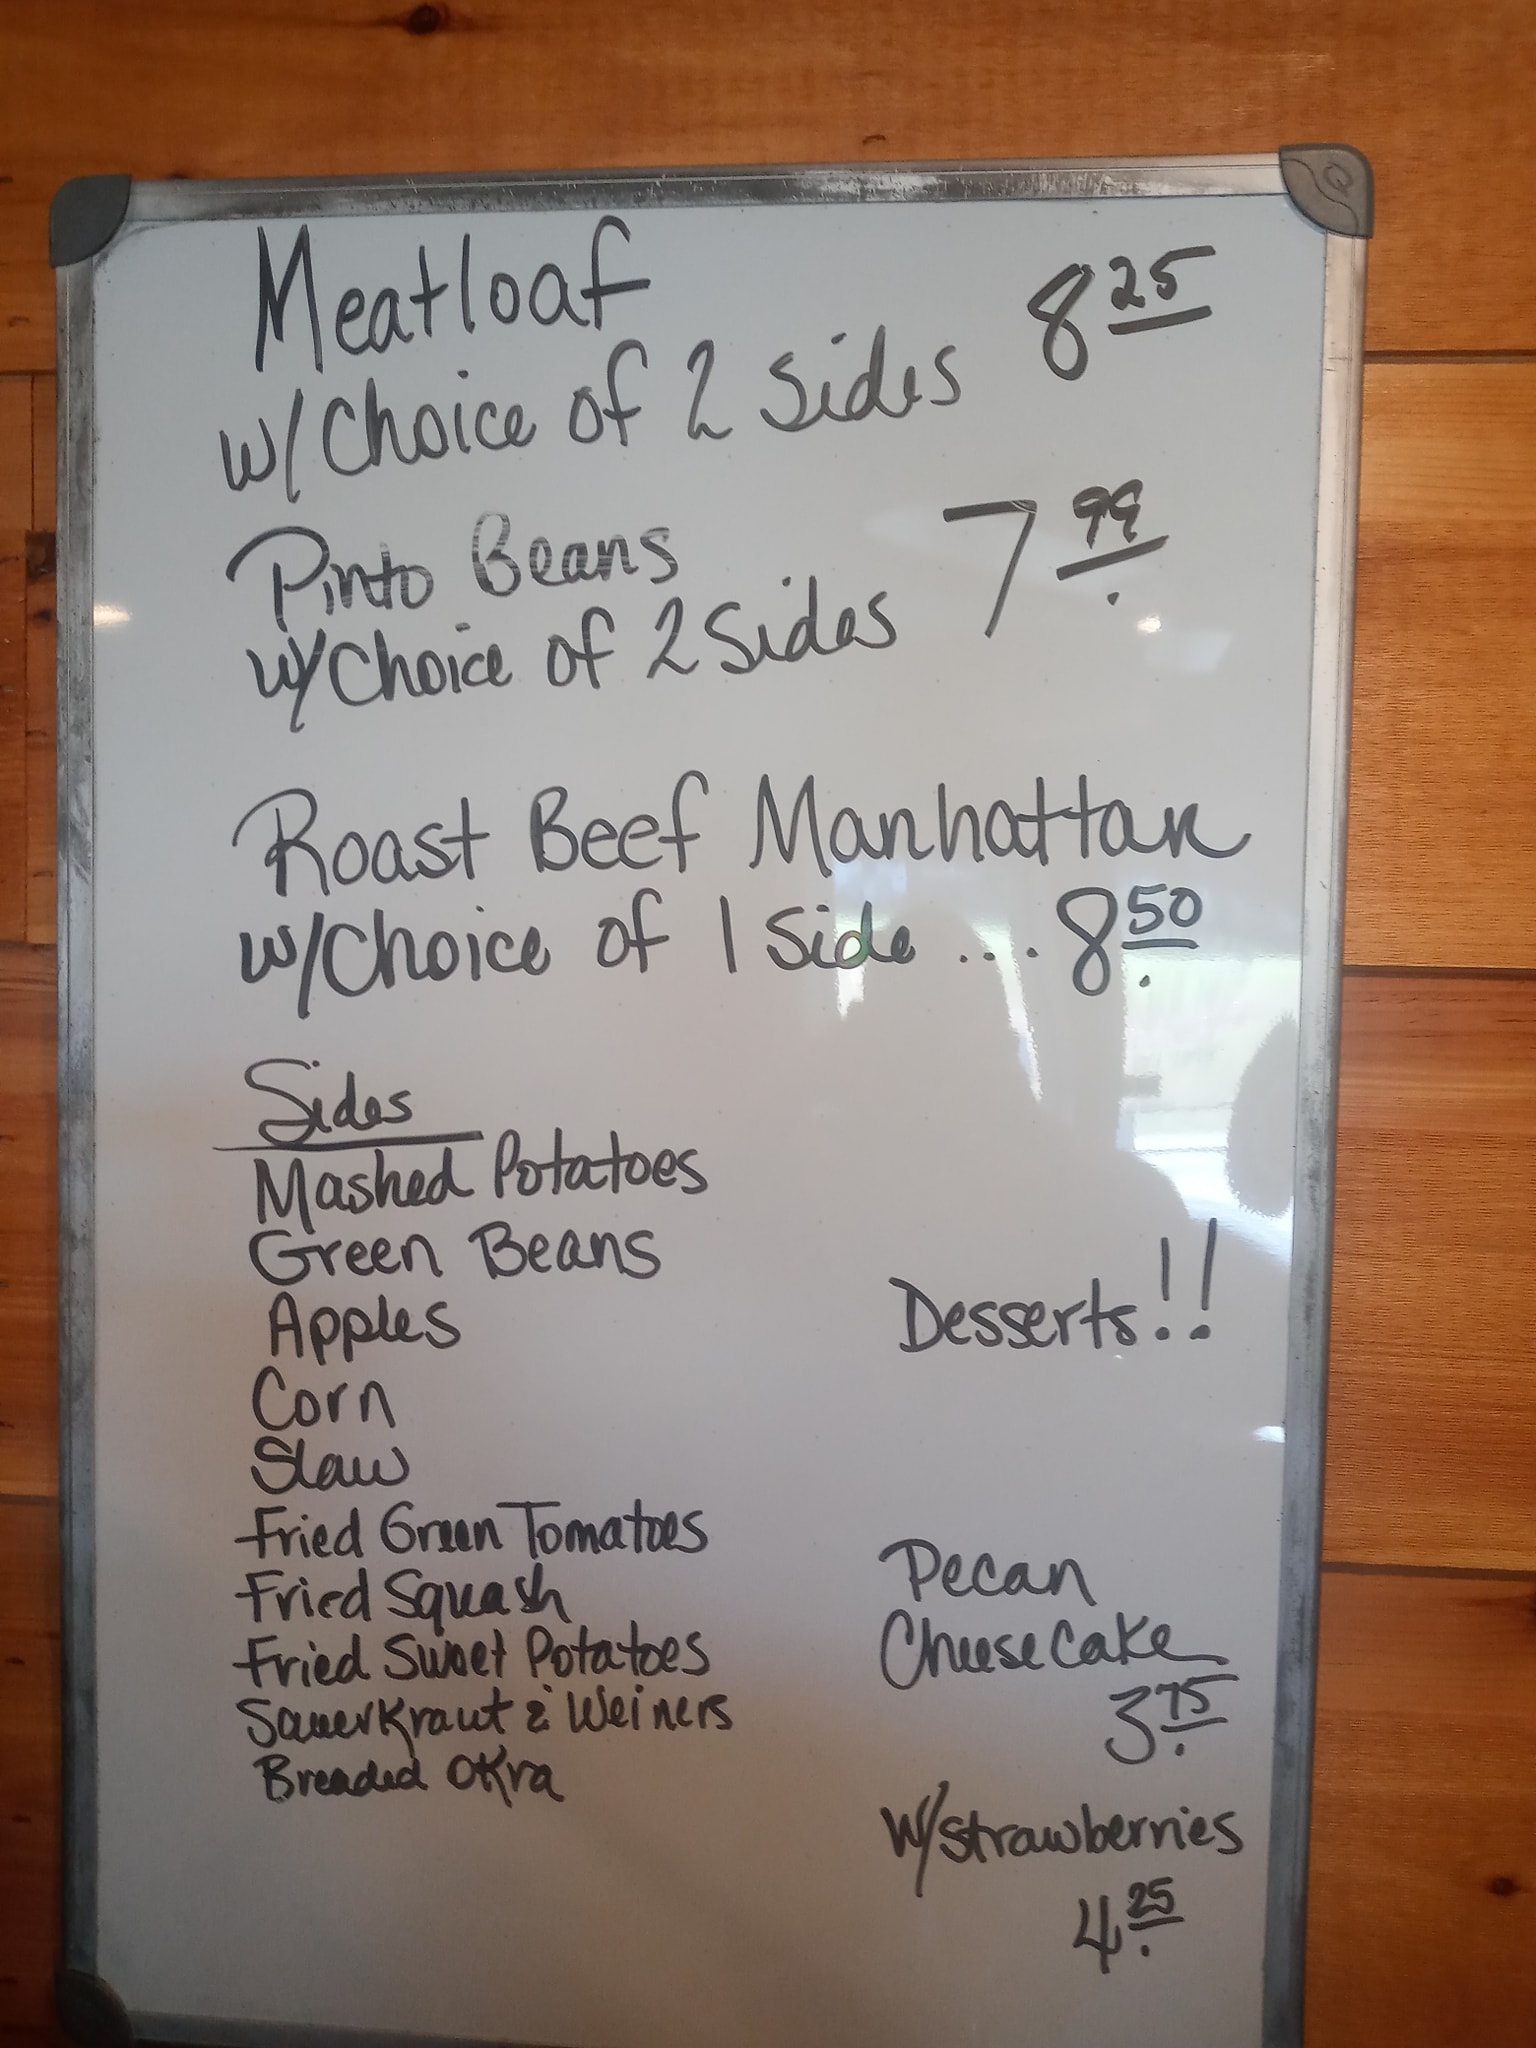 Meatloaf 8 25
w/Choice of 2 sides
Pinto Beans 7 99
w/Choice of 2 sides
Roast Beef Manhattan
w/Choice of 1 side .... 8 50
Sides
Mashed Potatoes
Green Beans
Apples
Corn
Slaw
Fried Green Tomatoes
Fried Squash
Fried Sweet Potatoes
Sauerkraut & Weiners
Breaded Okra
Desserts!!
Pecan
Cheesecake
3 75
w/strawberries
4 25